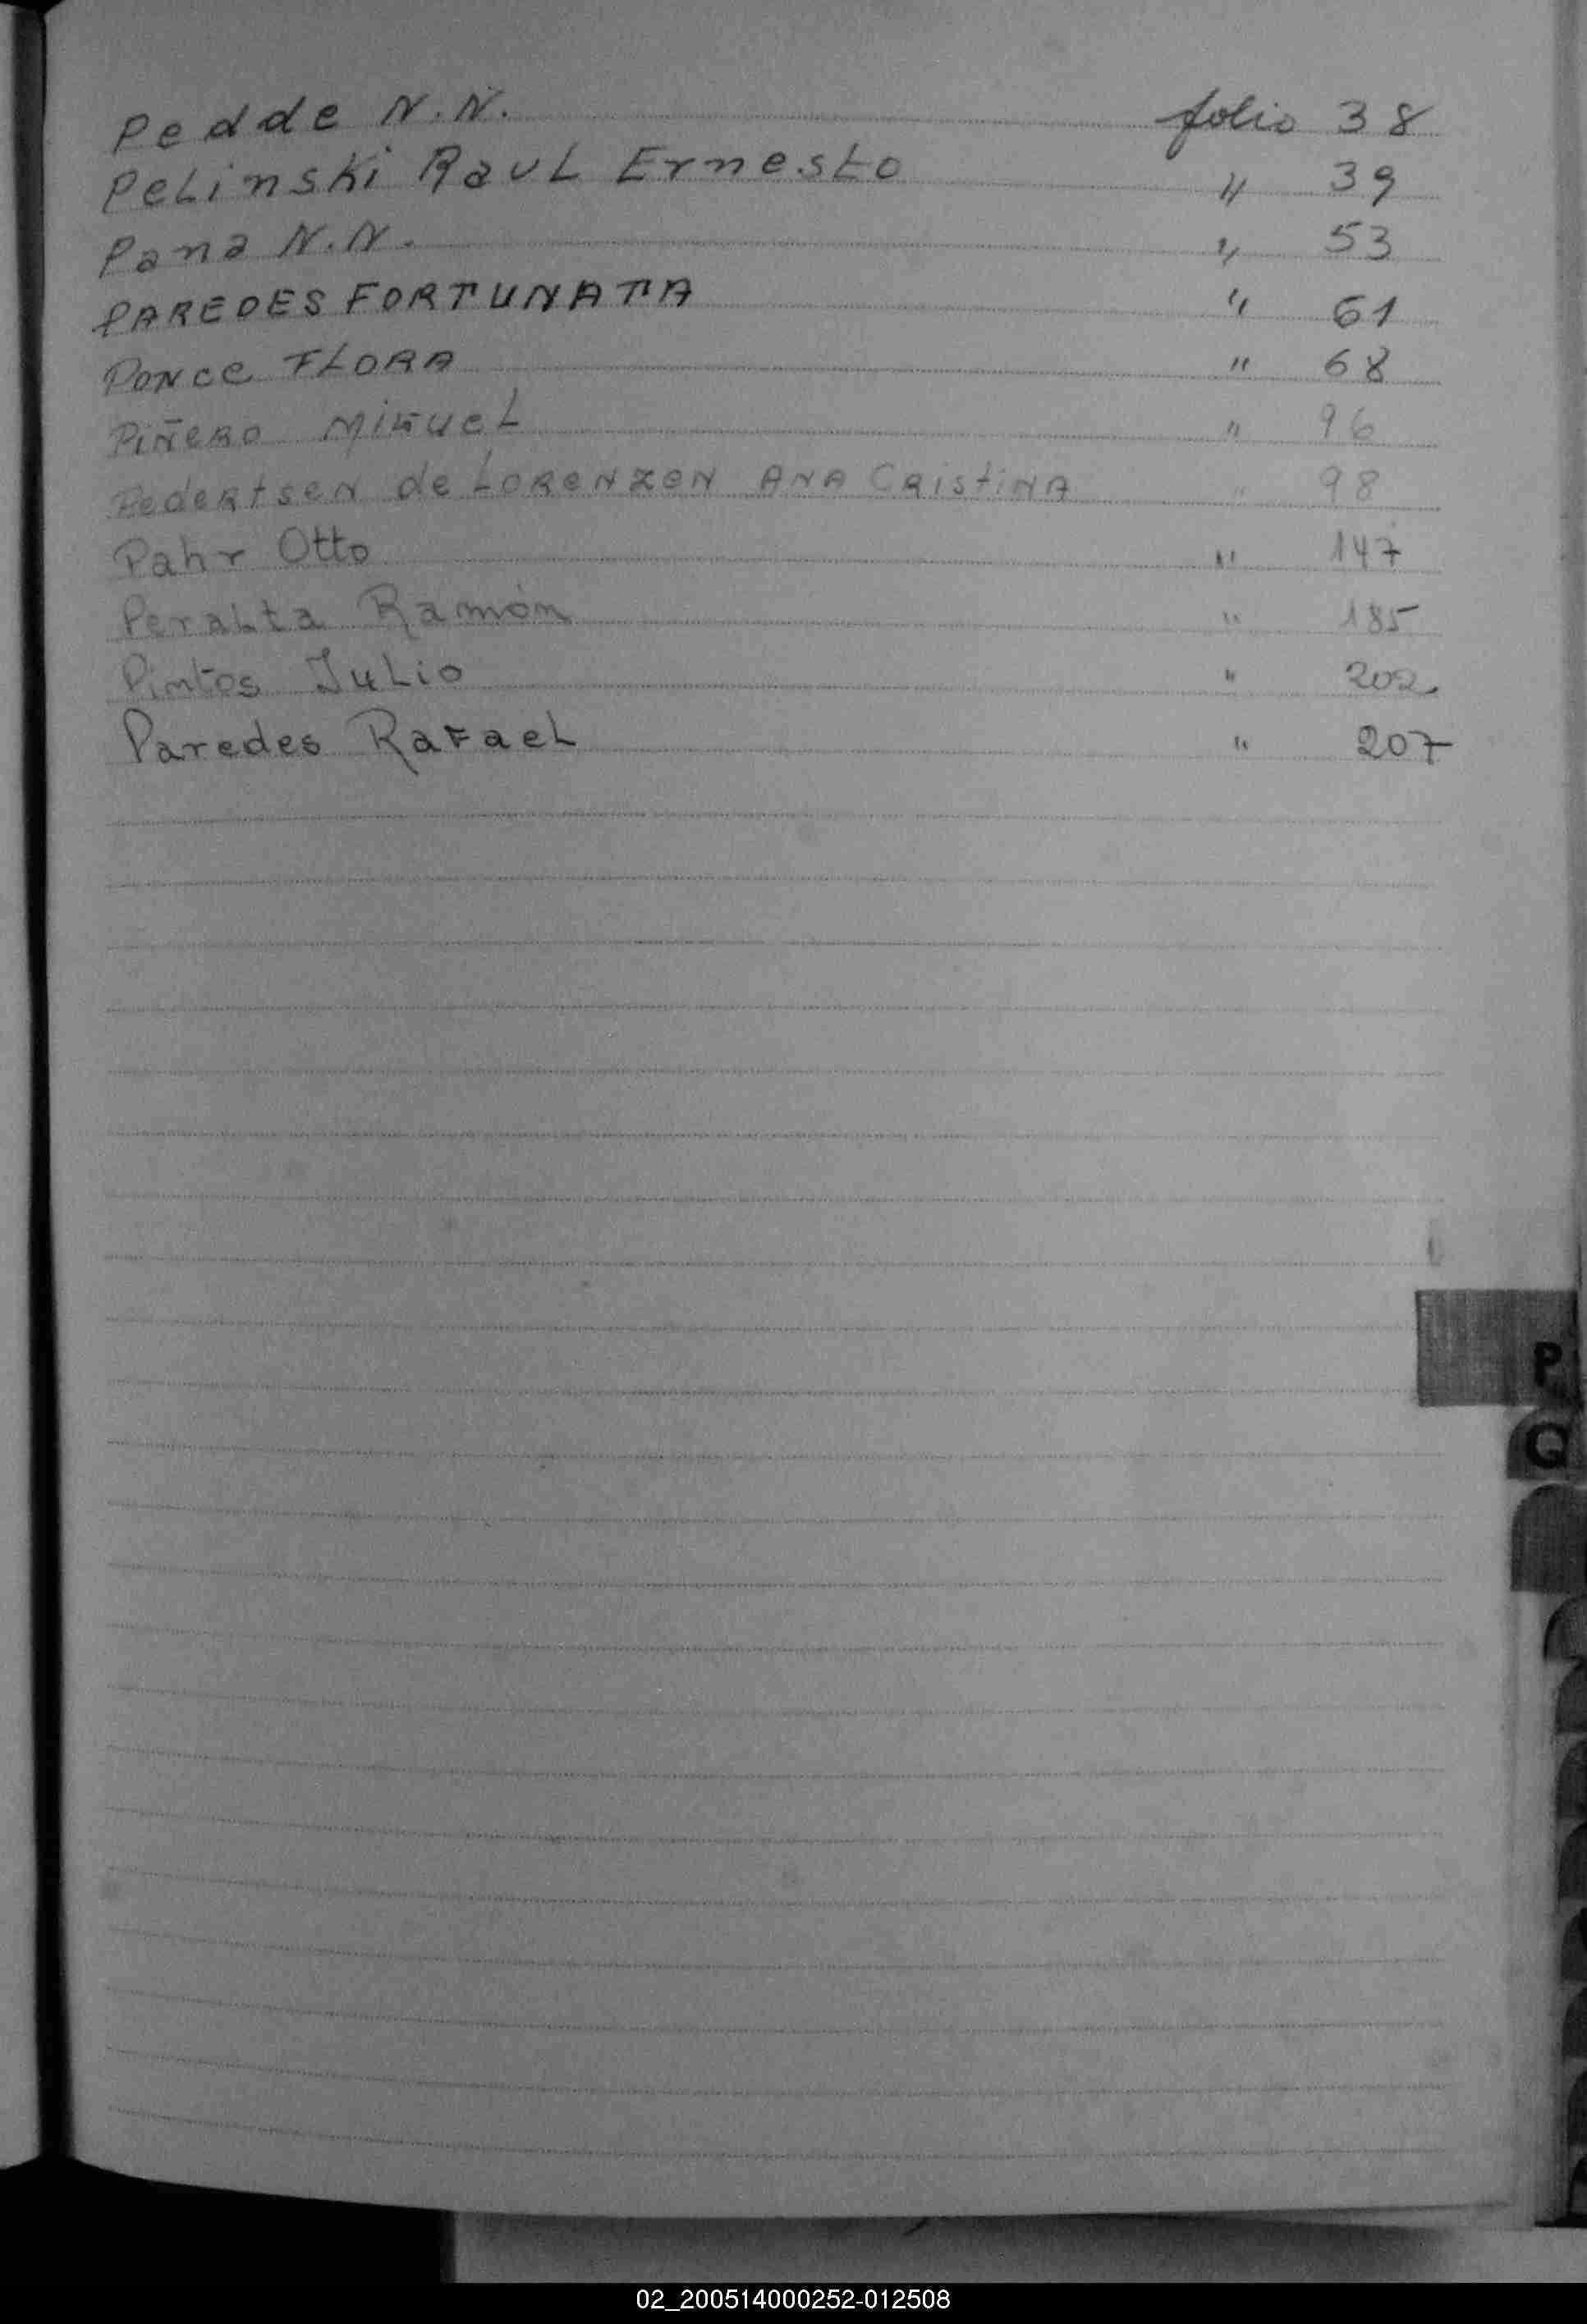 Pedde N.N. folio 38
Pelinski Raul Ernesto " 39
Pana N.N. " 53
PAREDES FORTUNATA " 61
PONCE FLORA " 68
PIÑERO MIGUEL " 96
Pedertsen de LORENZEN ANA CRISTINA " 98
Pahr Otto " 147
Peralta Ramón " 185
Pintos Julio " 202
Paredes Rafael " 207
P
Q
02_200514000252-012508